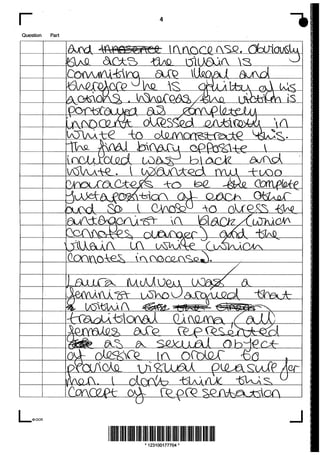 4
Question Part
and innocense. Obviously
the acts the villain is
committing are illegal and
therefore he is guilty of his
actions. Whereas, the victim is
portrayed as completely
innocent dressed entirely in
white to demonstrate this.
The final binary opposite I
included was black and
white. I wanted my two
characters to be the complete
juxtaposition of each other
and so I chose to dress the
antagonist in black (which
connotes danger) and the
villain in white (which
connotes innocense).
Laura Mulvey was a
feminist who argued that
within
traditional cinema, all
females are represented
as a sexual object
of desire in order to
provide visual pleasure for
men. I don't think this
concept of representation